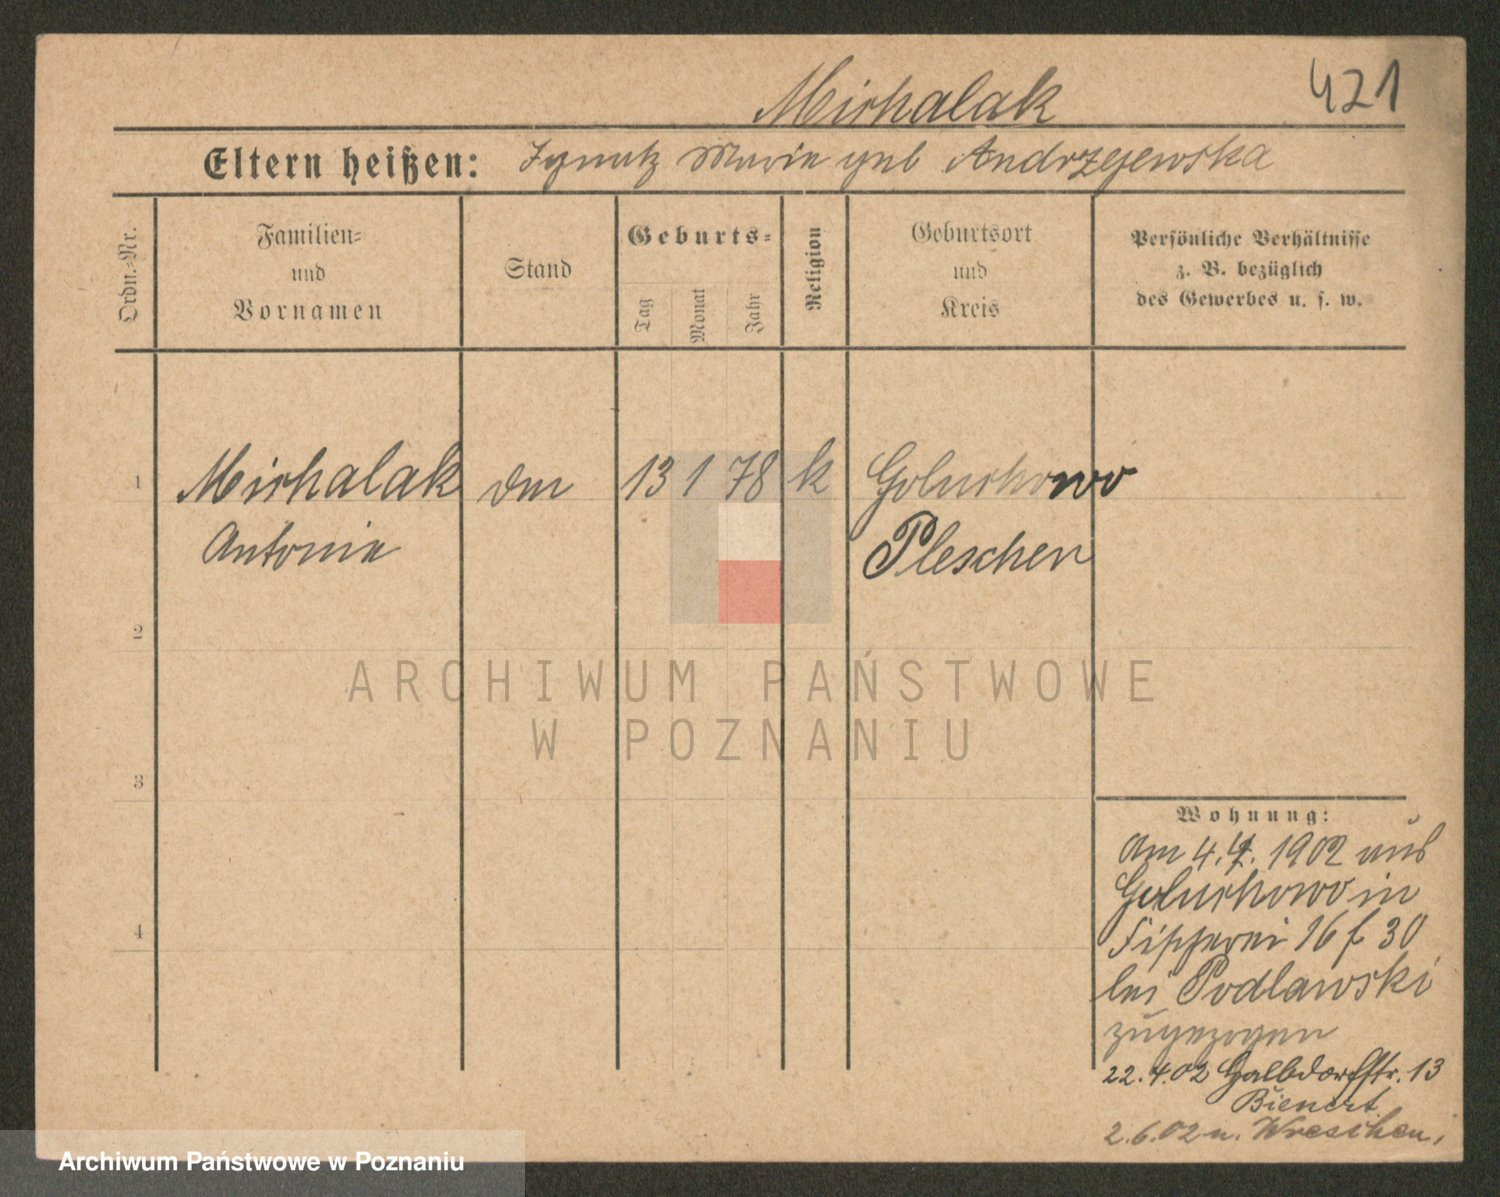 421
Michalak
Eltern heißen: Ignatz Marie geb Andrzejewska
Ordn.-Nr.
Familien- und Vornamen
Stand
Geburts-
Tag
Monat
Jahr
Religion
Geburtsort und Kreis
Persönliche Verhältnisse
z. B. bezüglich
des Gewerbes u. s. w.
1
Michalak
13 1 78 k
Goluchowo
Antonie
Pleschen
2
3
4
ARCHIWUM PAŃSTWOWE
W POZNANIU
Wohnung:
Am 4.4.1902 aus
Goluchowo in
Fischerei 16 f 30
bei Podlawski
zugezogen
22.4.02 Halbdorfstr. 13
Bienert
2.6.02 n. Wreschen,
Archiwum Państwowe w Poznaniu